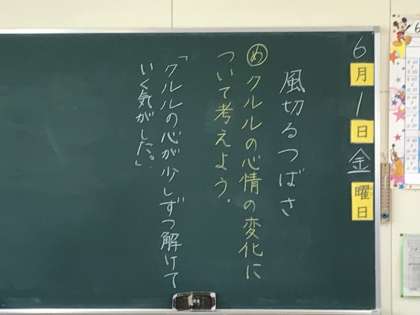 6月1日金曜日
風切るつばさ
めクルルの心情の変化に
ついて考えよう。
「クルルの心が少しずつ解けて
いく気がした。」